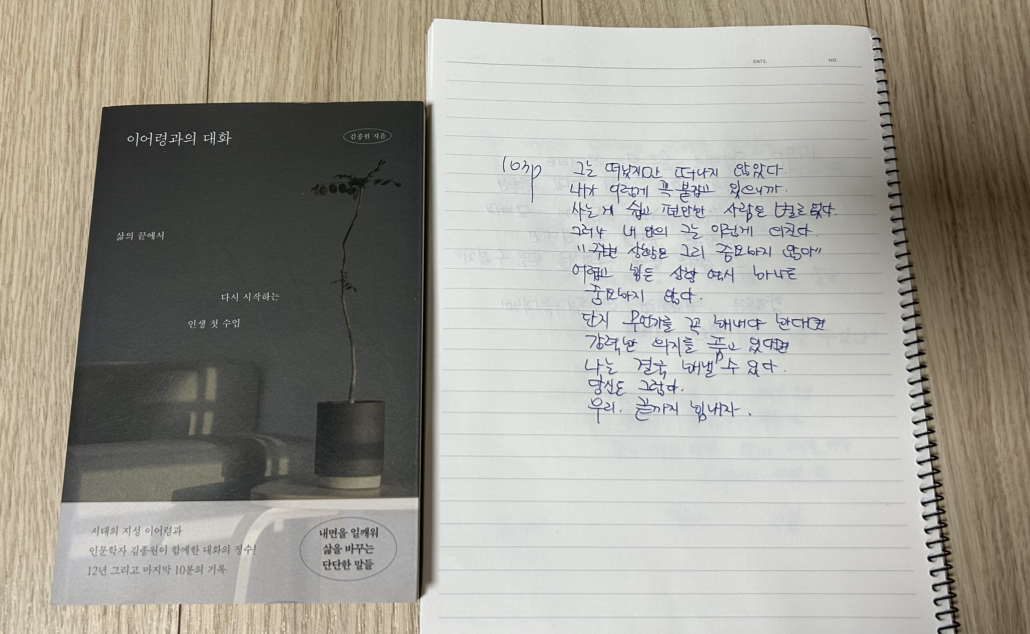 이어령과의 대화
김종원 지음
삶의 끝에서
다시 시작하는
인생 첫 수업
시대의 지성 이어령과
인문학자 김종원이 함께한 대화의 정수!
12년 그리고 마지막 10분의 기록
내면을 일깨워
삶을 바꾸는
단단한 말들
DATE. NO.
103p 그는 떠났지만 떠나지 않았다.
내가 이렇게 꼭 붙잡고 있으니까.
사는 게 쉽고 편안한 사람은 별로 없다.
그러나 내 안의 그는 이렇게 외친다.
"주변 상황은 그리 중요하지 않아"
어렵고 힘든 상황 역시 하나도
중요하지 않다.
단지 무언가를 꼭 해내야 한다면
강력한 의지를 품고 있다면
나는 결국 해낼 수 있다.
당신도 그렇다.
우리. 끝까지 힘내자.